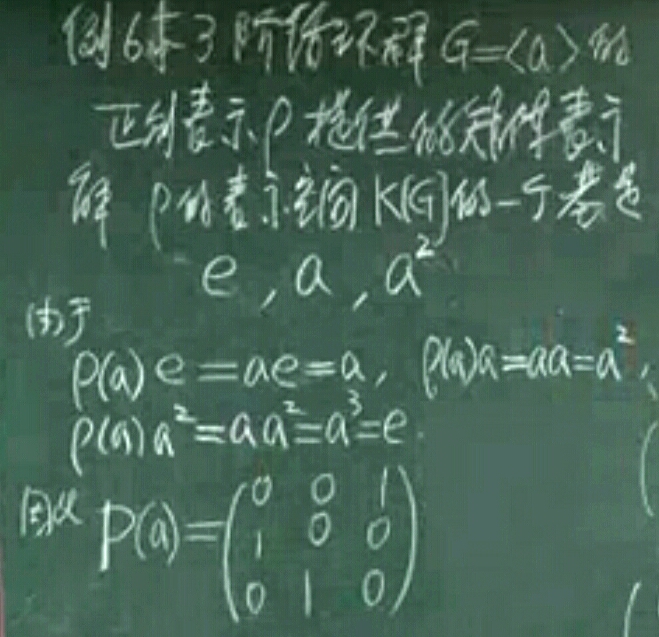 例6 求3阶循环群 G=<a>的
正则表示ρ提供的矩阵表示
解 ρ的表示空间 K[G]的一个基是
e , a , a²
由于
ρ(a)e=ae=a, ρ(a)a=aa=a²,
ρ(a)a²=aa²=a³=e.
因此 P(a)=
0 0 1
1 0 0
0 1 0